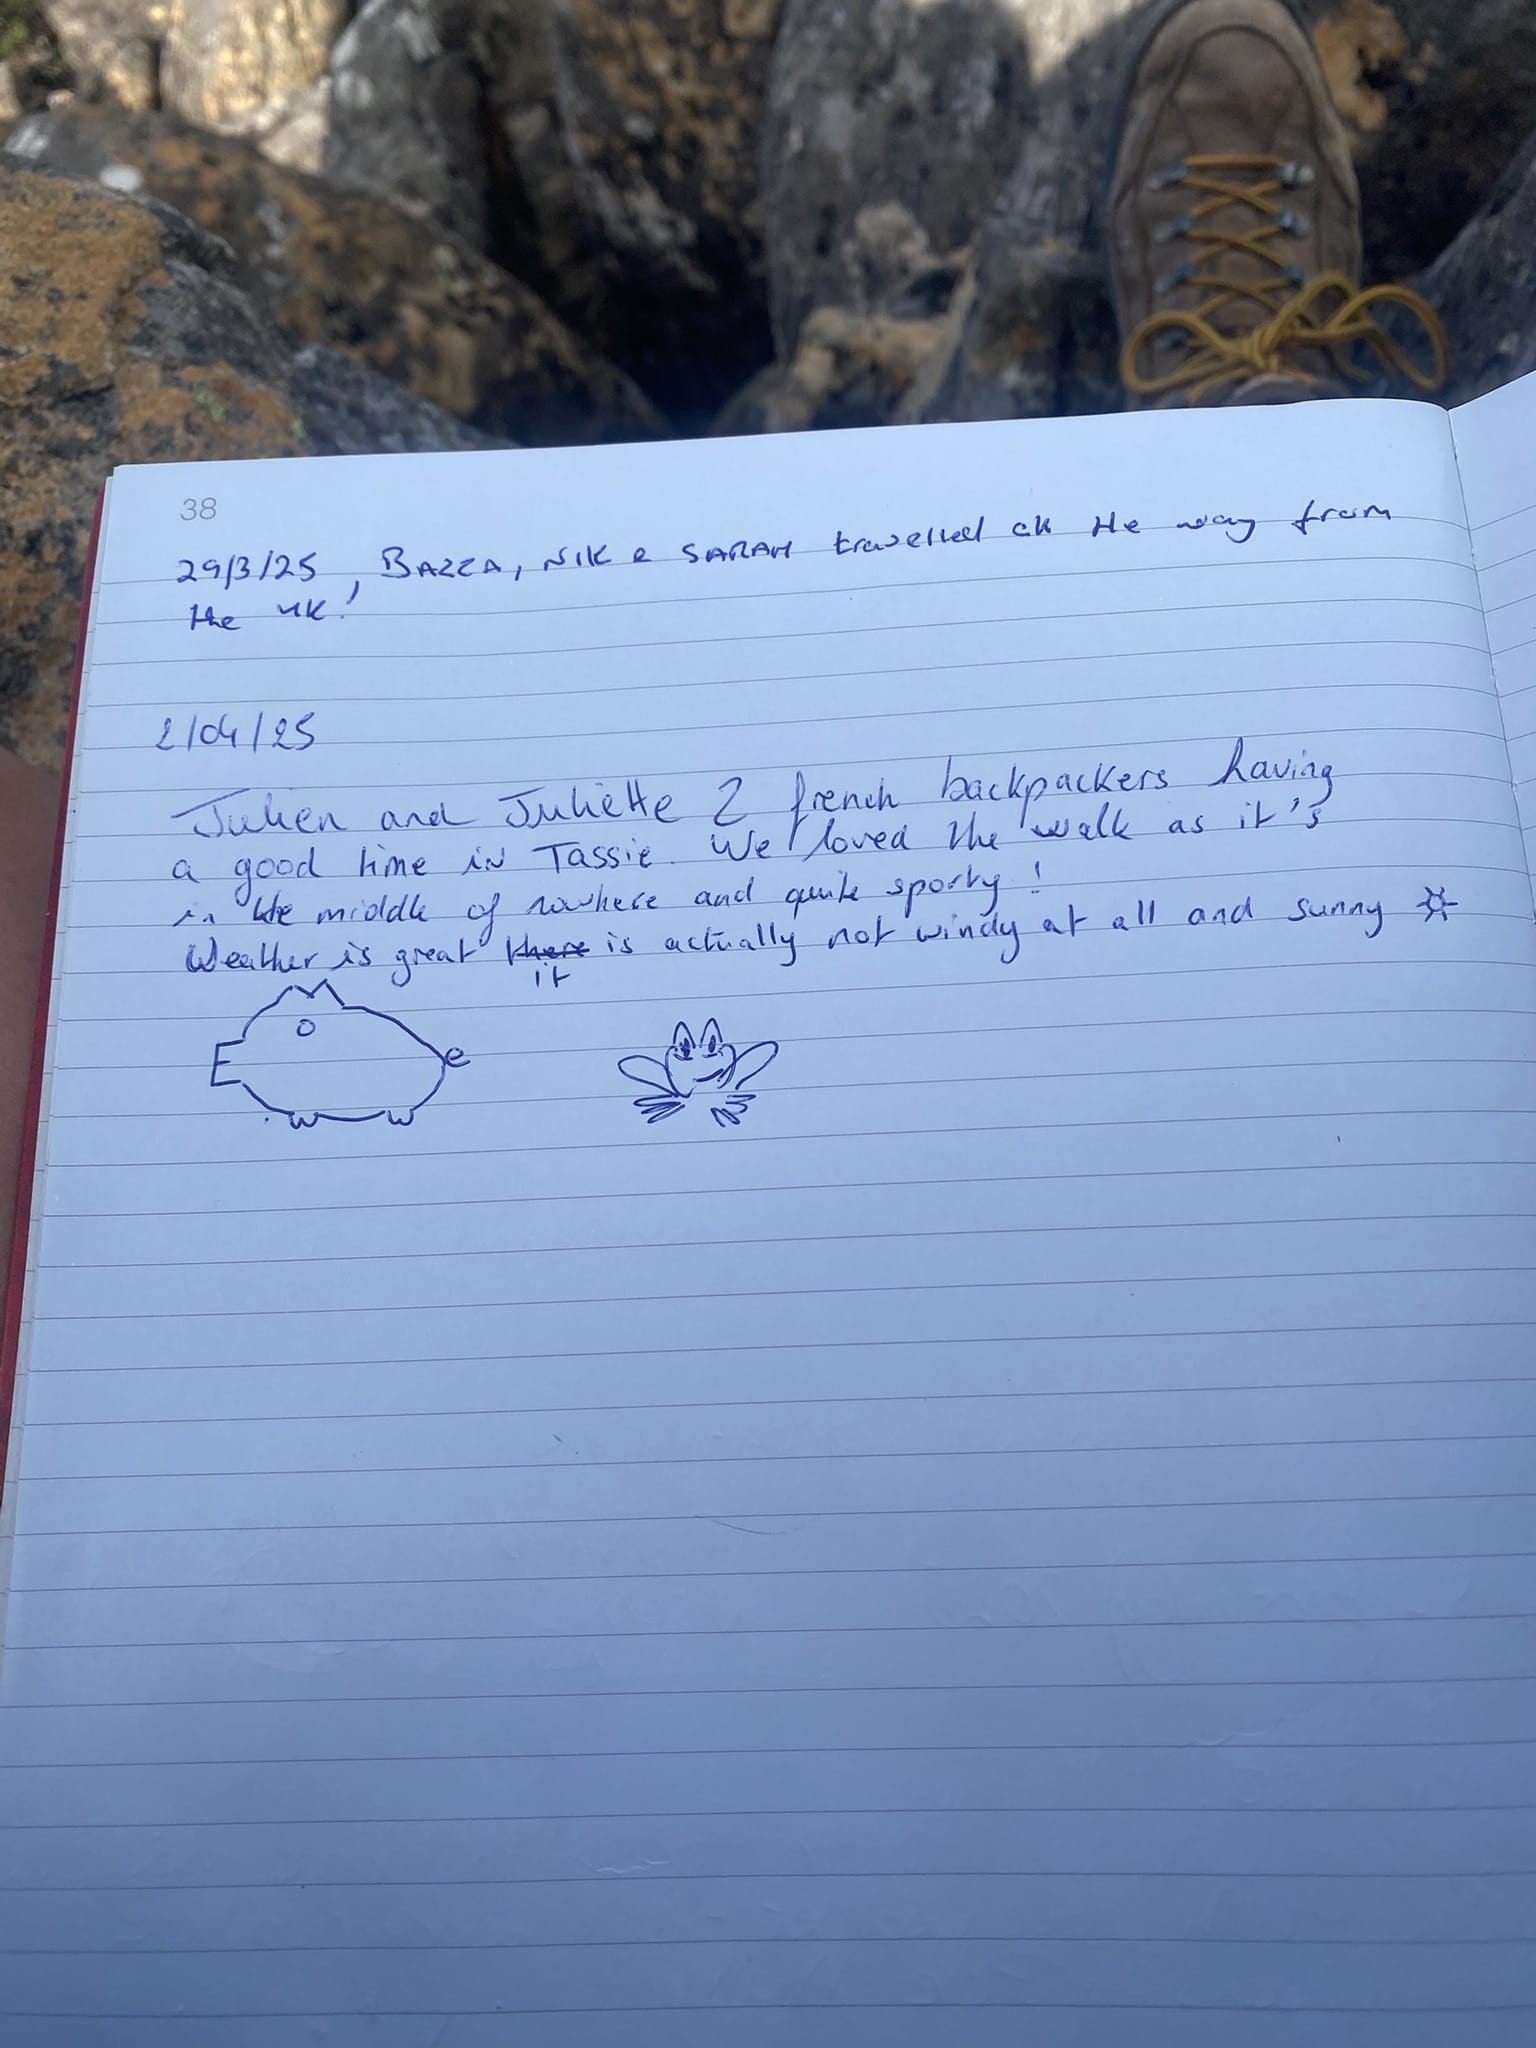 38
29/3/25, BAZZA, NIK & SARAH travelled all the way from
the UK!
2/04/25
Julien and Juliette 2 french backpackers having
a good time in Tassie. We loved the walk as it's
in the middle of nowhere and quite sporty!
Weather is great there is actually not windy at all and sunny
it